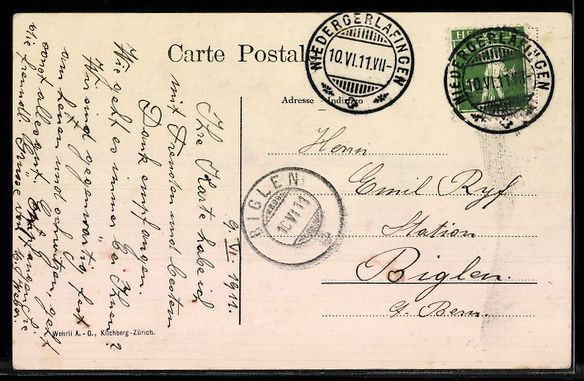 Carte Postale
Adresse - Indirizzo
HELVETIA
NIEDERGERLAFINGEN
10.VI.11.VII-
NIEDERGERLAFINGEN
10.VI.11.VII-
BIGLEN
10.VI.11
Herrn
Emil Ryf
Station
Biglen.
Ct. Bern.
9. VI. 1911.
Ihre Karte habe ich
mit Freuden und bestem
Dank empfangen.
Wie geht es immer bei Ihnen?
Wir sind gegenwärtig fest
am heuen und schwitzen, geht
sonst alles gut. Empfangen Sie
die freundl. Grüsse von
Wehrli A.-G., Kilchberg-Zürich.